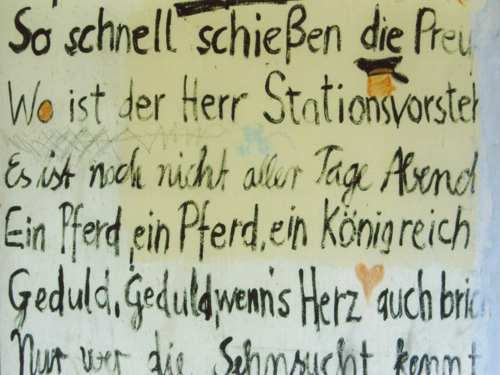 So schnell schießen die Preu
Wo ist der Herr Stationsvorsteh
Es ist noch nicht aller Tage Abend
Ein Pferd, ein Pferd, ein Königreich
Geduld, Geduld, wenn's Herz auch bric
Nur wer die Sehnsucht kennt